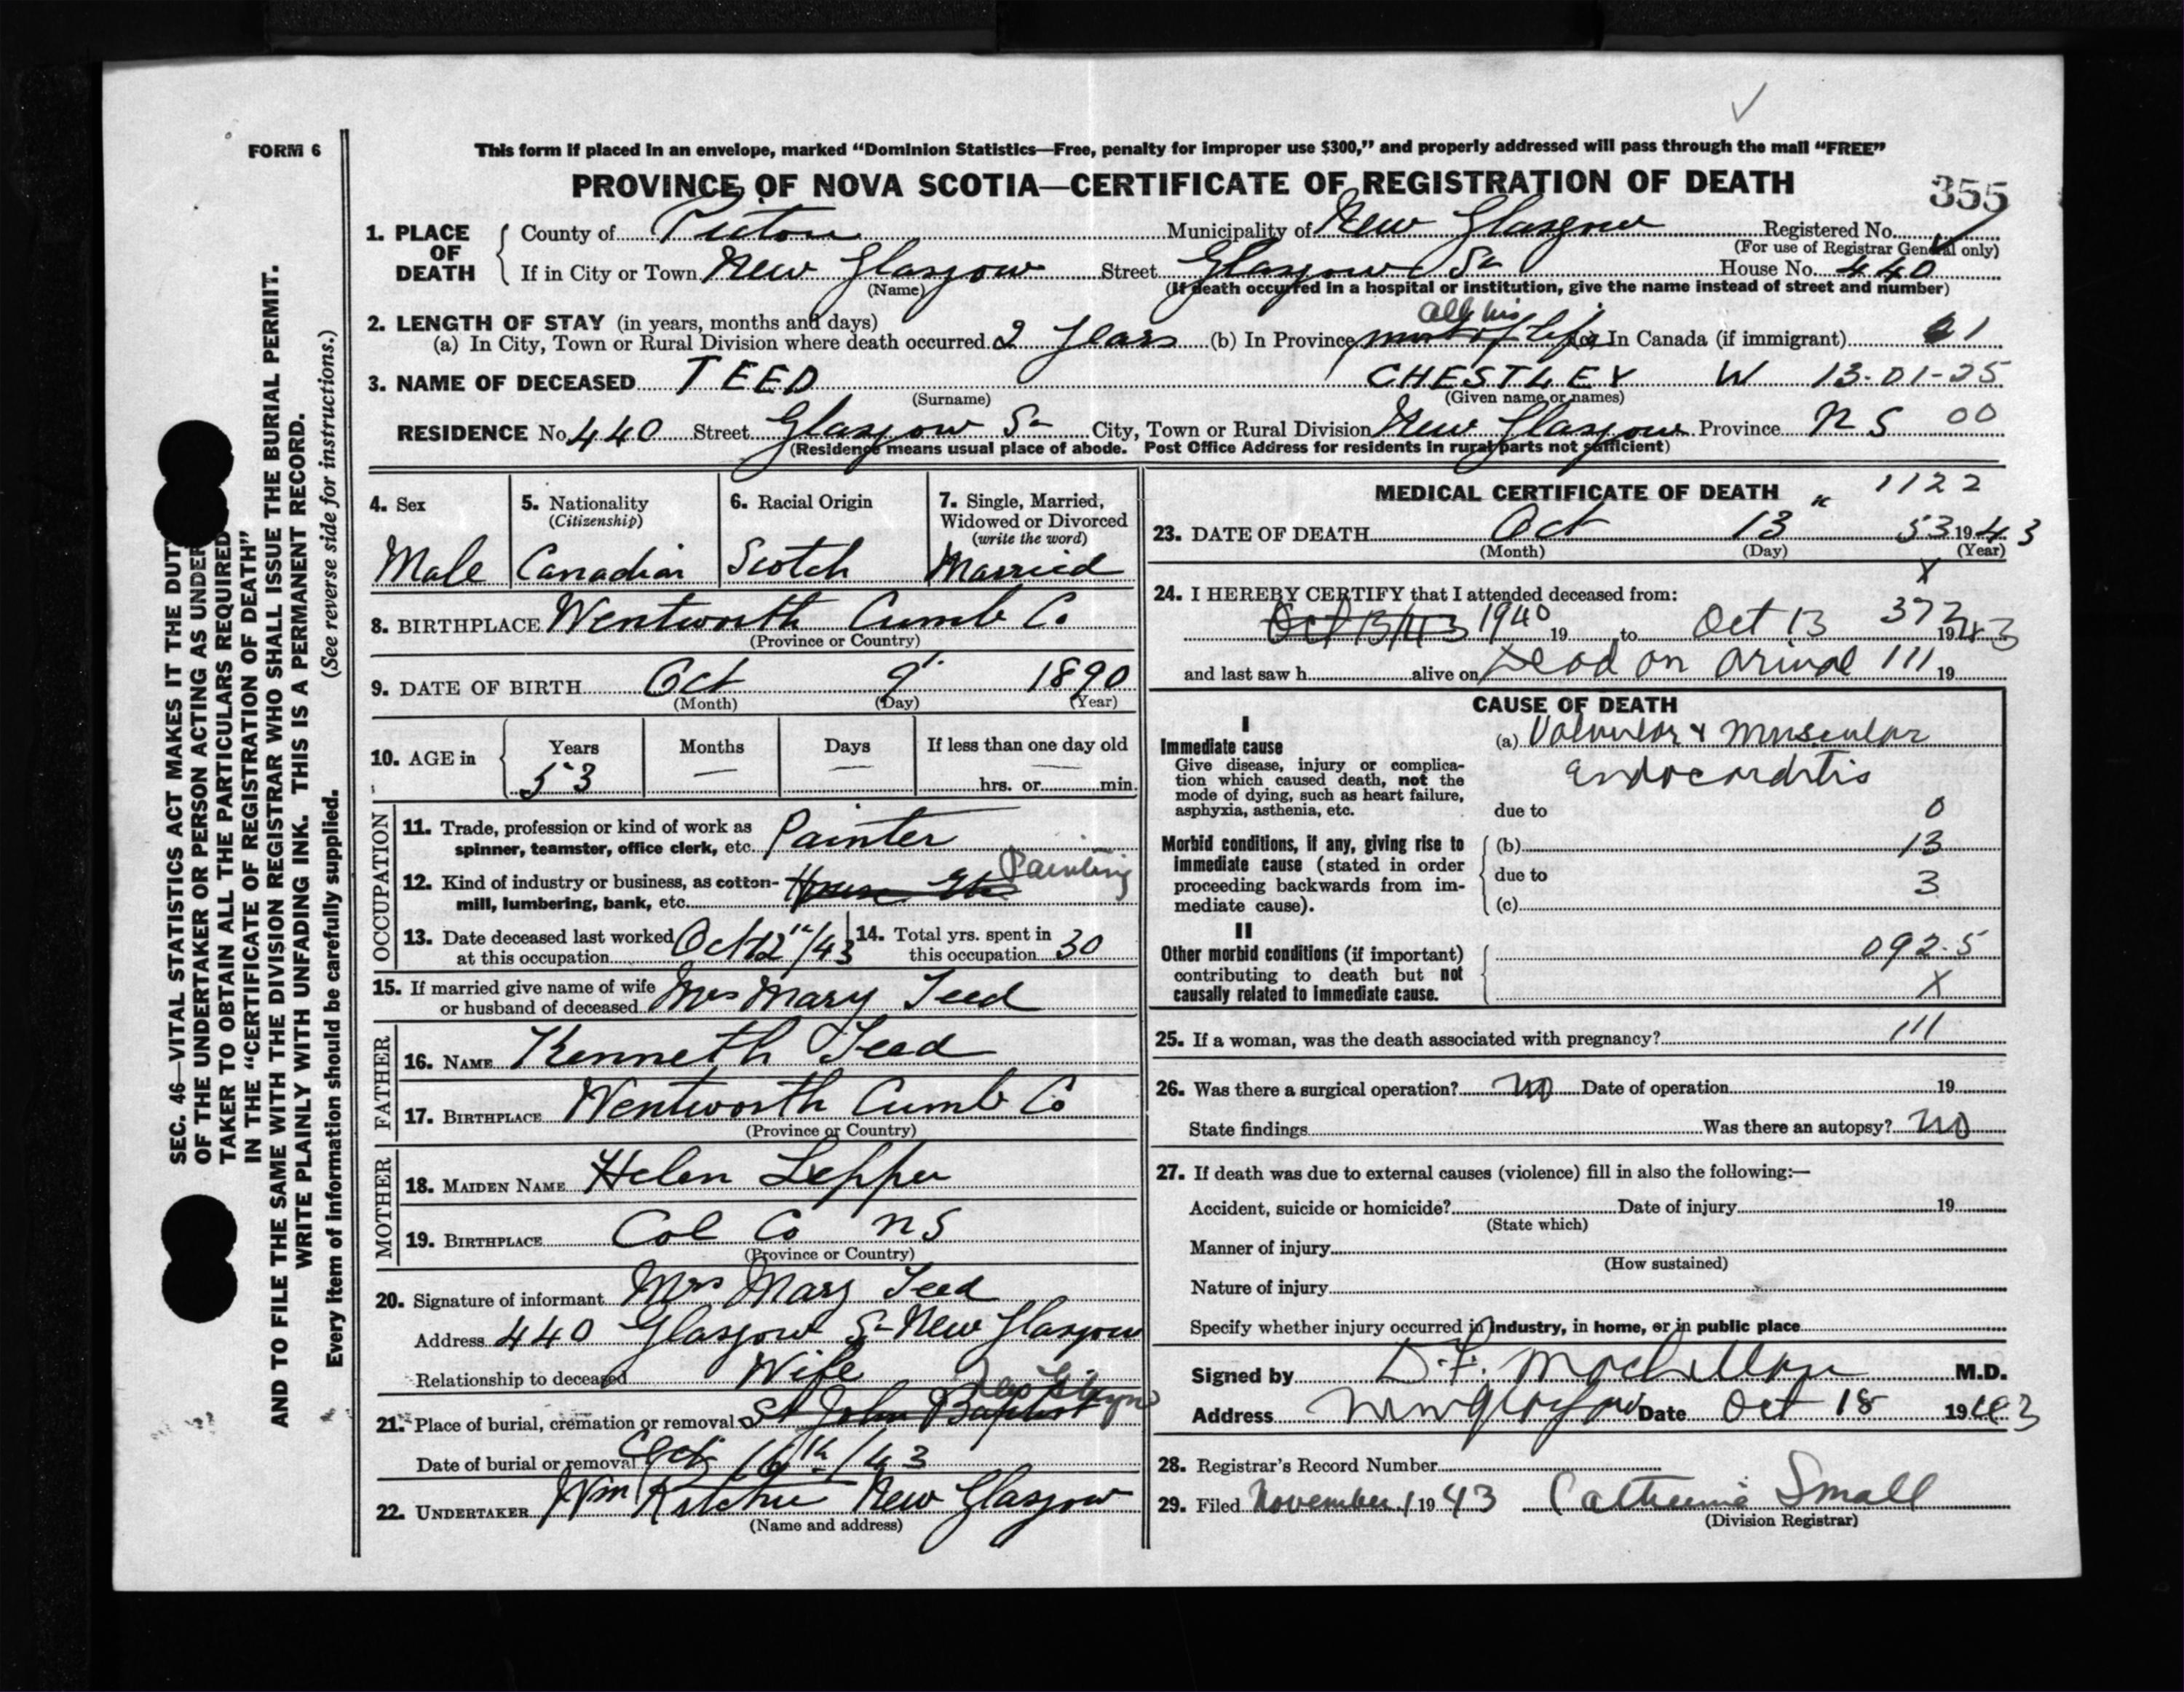 FORM 6
This form if placed in an envelope, marked “Dominion Statistics—Free, penalty for improper use $300,” and properly addressed will pass through the mail “FREE”
PROVINCE OF NOVA SCOTIA—CERTIFICATE OF REGISTRATION OF DEATH
355
1. PLACE OF DEATH County of Pictou Municipality of New Glasgow Registered No.
(For use of Registrar General only)
If in City or Town New Glasgow Street Glasgow St House No. 440
(Name) (If death occurred in a hospital or institution, give the name instead of street and number)
2. LENGTH OF STAY (in years, months and days) all his
(a) In City, Town or Rural Division where death occurred 2 years (b) In Province most of life (c) In Canada (if immigrant) 21
3. NAME OF DECEASED TEED CHESTLEY W 13-01-25
(Surname) (Given name or names)
RESIDENCE No. 440 Street Glasgow St City, Town or Rural Division New Glasgow Province N S 00
(Residence means usual place of abode. Post Office Address for residents in rural parts not sufficient)
4. Sex
Male
5. Nationality
(Citizenship)
Canadian
6. Racial Origin
Scotch
7. Single, Married,
Widowed or Divorced
(write the word)
Married
8. BIRTHPLACE Wentworth Cumb Co.
(Province or Country)
9. DATE OF BIRTH Oct 9 1890
(Month) (Day) (Year)
10. AGE in Years Months Days If less than one day old
53 — — —
hrs. or min.
OCCUPATION
11. Trade, profession or kind of work as
spinner, teamster, office clerk, etc. Painter
12. Kind of industry or business, as cotton-
mill, lumbering, bank, etc. House Painting
13. Date deceased last worked
at this occupation Oct 12th/43
14. Total yrs. spent in
this occupation 30
15. If married give name of wife
or husband of deceased Mrs Mary Teed
FATHER
16. NAME Kenneth Teed
17. BIRTHPLACE Wentworth Cumb Co
(Province or Country)
MOTHER
18. MAIDEN NAME Helen Lepper
19. BIRTHPLACE Col Co N S
(Province or Country)
20. Signature of informant Mrs Mary Teed
Address 440 Glasgow St New Glasgow
Relationship to deceased Wife
21. Place of burial, cremation or removal St John Baptist
Date of burial or removal Oct 16th/43
22. UNDERTAKER Wm Ritchie New Glasgow
(Name and address)
MEDICAL CERTIFICATE OF DEATH 1122
23. DATE OF DEATH Oct 13th 53 1943
(Month) (Day) (Year)
X
24. I HEREBY CERTIFY that I attended deceased from:
Oct 13/43 1940 19 to Oct 13 372 1943
and last saw h alive on Dead on arival 111 19
CAUSE OF DEATH
I
Immediate cause
Give disease, injury or complica-
tion which caused death, not the
mode of dying, such as heart failure,
asphyxia, asthenia, etc.
(a) Valvular & muscular
Endocarditis
due to 0
Morbid conditions, if any, giving rise to
immediate cause (stated in order
proceeding backwards from im-
mediate cause).
(b) 13
due to 3
(c)
II
Other morbid conditions (if important)
contributing to death but not
causally related to immediate cause.
092.5
X
25. If a woman, was the death associated with pregnancy? 111
26. Was there a surgical operation? no Date of operation 19
State findings Was there an autopsy? no
27. If death was due to external causes (violence) fill in also the following:—
Accident, suicide or homicide? Date of injury 19
(State which)
Manner of injury
(How sustained)
Nature of injury
Specify whether injury occurred in industry, in home, or in public place
Signed by D. F. MacLellan M.D.
Address New Glasgow Date Oct 18 1943
28. Registrar's Record Number
29. Filed November 1 1943 Catherine Small
(Division Registrar)
SEC. 46—VITAL STATISTICS ACT MAKES IT THE DUTY
OF THE UNDERTAKER OR PERSON ACTING AS UNDER
TAKER TO OBTAIN ALL THE PARTICULARS REQUIRED
IN THE “CERTIFICATE OF REGISTRATION OF DEATH”
AND TO FILE THE SAME WITH THE DIVISION REGISTRAR WHO SHALL ISSUE THE BURIAL PERMIT.
WRITE PLAINLY WITH UNFADING INK. THIS IS A PERMANENT RECORD.
Every item of information should be carefully supplied. (See reverse side for instructions.)